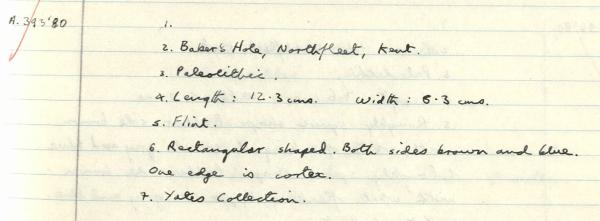 A.393'80
1.
2. Baker's Hole, Northfleet, Kent.
3. Paleolithic.
4. Length: 12.3 cms. Width: 8.3 cms.
5. Flint.
6. Rectangular shaped. Both sides brown and blue.
One edge is cortex.
7. Yates Collection.